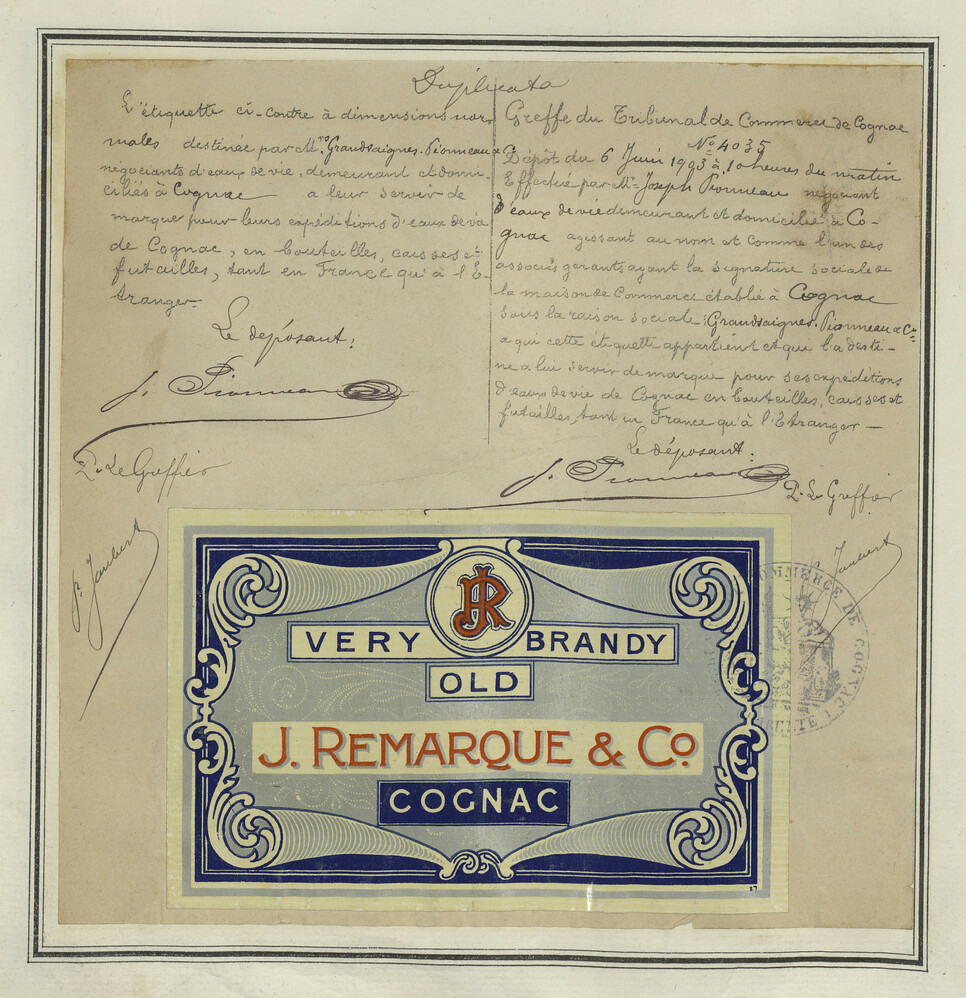 Duplicata
L'étiquette ci-contre à dimensions nor
males destinée par Mrs Grandsaignes, Pionneau &
négociants d'eaux de vie, demeurant et domi-
ciliés à Cognac a leur servir de
marque pour leurs expéditions d'eaux de vie
de Cognac, en bouteilles, caisses et
futailles, tant en France qu'à l'E-
tranger
Le déposant:
J. Pionneau
P. Le Greffier
Greffe du Tribunal de Commerce de Cognac
No 4035
Dépôt du 6 Juin 1903 à 10 heures du matin
Effectué par Mr Joseph Pionneau négociant
d'eaux de vie demeurant et domicilié à Co-
gnac agissant au nom et comme l'un des
associés gérants ayant la signature sociale de
la maison de Commerce établie à Cognac
sous la raison sociale: Grandsaignes, Pionneau & Cie
a qui cette étiquette appartient et qui l'a desti-
ne a lui servir de marque pour ses expéditions
d'eaux de vie de Cognac en bouteilles, caisses et
futailles, tant en France qu'à l'Etranger —
Le déposant:
J. Pionneau
P. Le Greffier
JR
VERY BRANDY
OLD
J. REMARQUE & Co
COGNAC
17
COMMERCE DE COGNAC